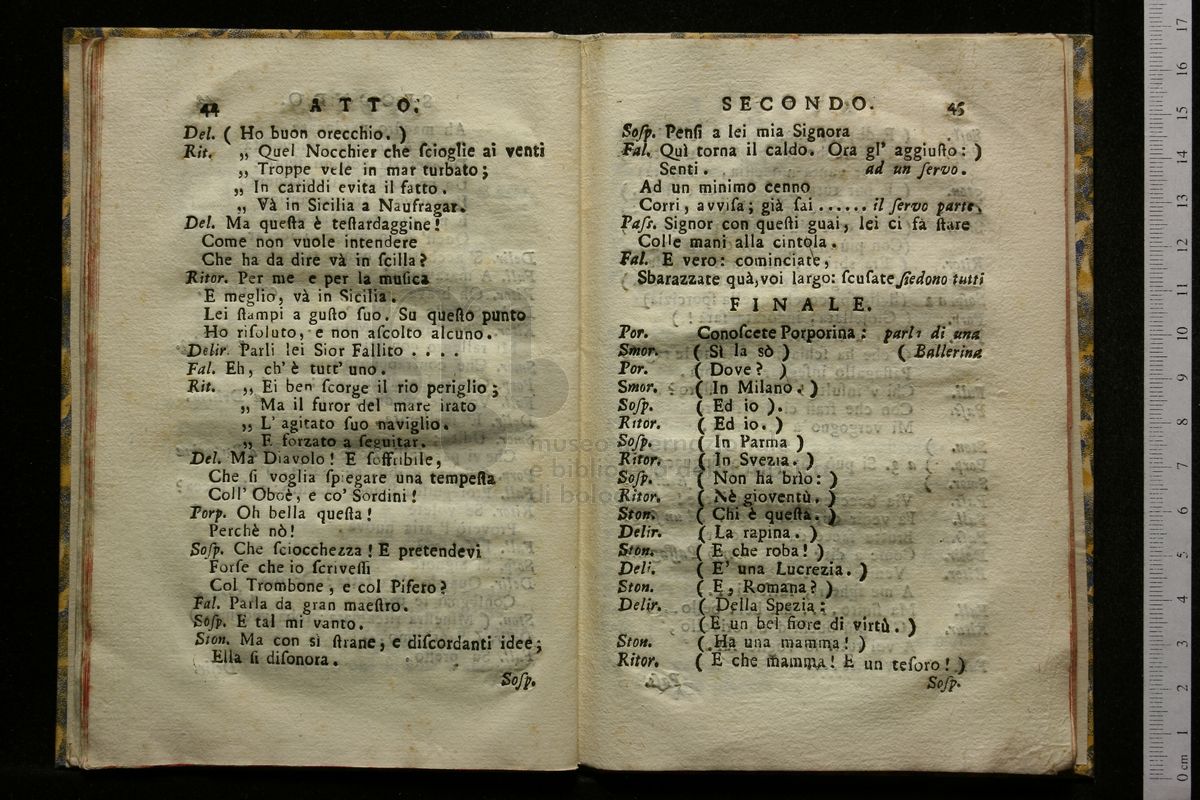 44 ATTO.
Del. ( Ho buon orecchio. )
Rit. „ Quel Nocchier che ſcioglie ai venti
„ Troppe vele in mar turbato;
„ In cariddi evita il fatto.
„ Và in Sicilia a Naufragar.
Del. Ma queſta è teſtardaggine!
Come non vuole intendere
Che ha da dire và in ſcilla?
Ritor. Per me e per la muſica
E meglio, và in Sicilia.
Lei ſtampi a guſto ſuo. Su queſto punto
Ho riſoluto, e non aſcolto alcuno.
Delir. Parli lei Sior Fallito . . . .
Fal. Eh, ch' è tutt' uno.
Rit. „ Ei ben ſcorge il rio periglio;
„ Ma il furor del mare irato
„ L' agitato ſuo naviglio.
„ E forzato a ſeguitar.
Del. Ma Diavolo! E ſoffribile,
Che ſi voglia ſpiegare una tempeſta
Coll' Oboè, e co' Sordini!
Porp. Oh bella queſta!
Perchè nò!
Soſp. Che ſciocchezza! E pretendevi
Forſe che io ſcriveſſi
Col Trombone, e col Pifero?
Fal. Parla da gran maeſtro.
Soſp. E tal mi vanto.
Ston. Ma con sì ſtrane, e diſcordanti idee;
Ella ſi diſonora.
Soſp.
SECONDO. 45
Soſp. Penſi a lei mia Signora
Fal. Quì torna il caldo. Ora gl' aggiuſto: )
Senti. ad un ſervo.
Ad un minimo cenno
Corri, avviſa; già ſai ...... il ſervo parte.
Paſs. Signor con queſti guai, lei ci fà ſtare
Colle mani alla cintola.
Fal. E vero: cominciate,
Sbarazzate quà, voi largo: ſcuſate ſiedono tutti
FINALE.
Por. Conoſcete Porporina: parla di una
Smor. ( Sì la sò ) ( Ballerina
Por. ( Dove? )
Smor. ( In Milano. )
Soſp. ( Ed io ).
Ritor. ( Ed io. )
Soſp. ( In Parma )
Ritor. ( In Svezia. )
Soſp. ( Non ha brìo: )
Ritor. ( Nè gioventù. )
Ston. ( Chi è queſta. )
Delir. ( La rapina. )
Ston. ( E che roba! )
Deli. ( E' una Lucrezia. )
Ston. ( E, Romana? )
Delir. ( Della Spezia:
( E un bel fiore di virtù. )
Ston. ( Ha una mamma! )
Ritor. ( E che mamma! E un teſoro! )
Soſp.
museo
e biblio
di bolo
0 cm 1 2 3 4 5 6 7 8 9 10 11 12 13 14 15 16 17